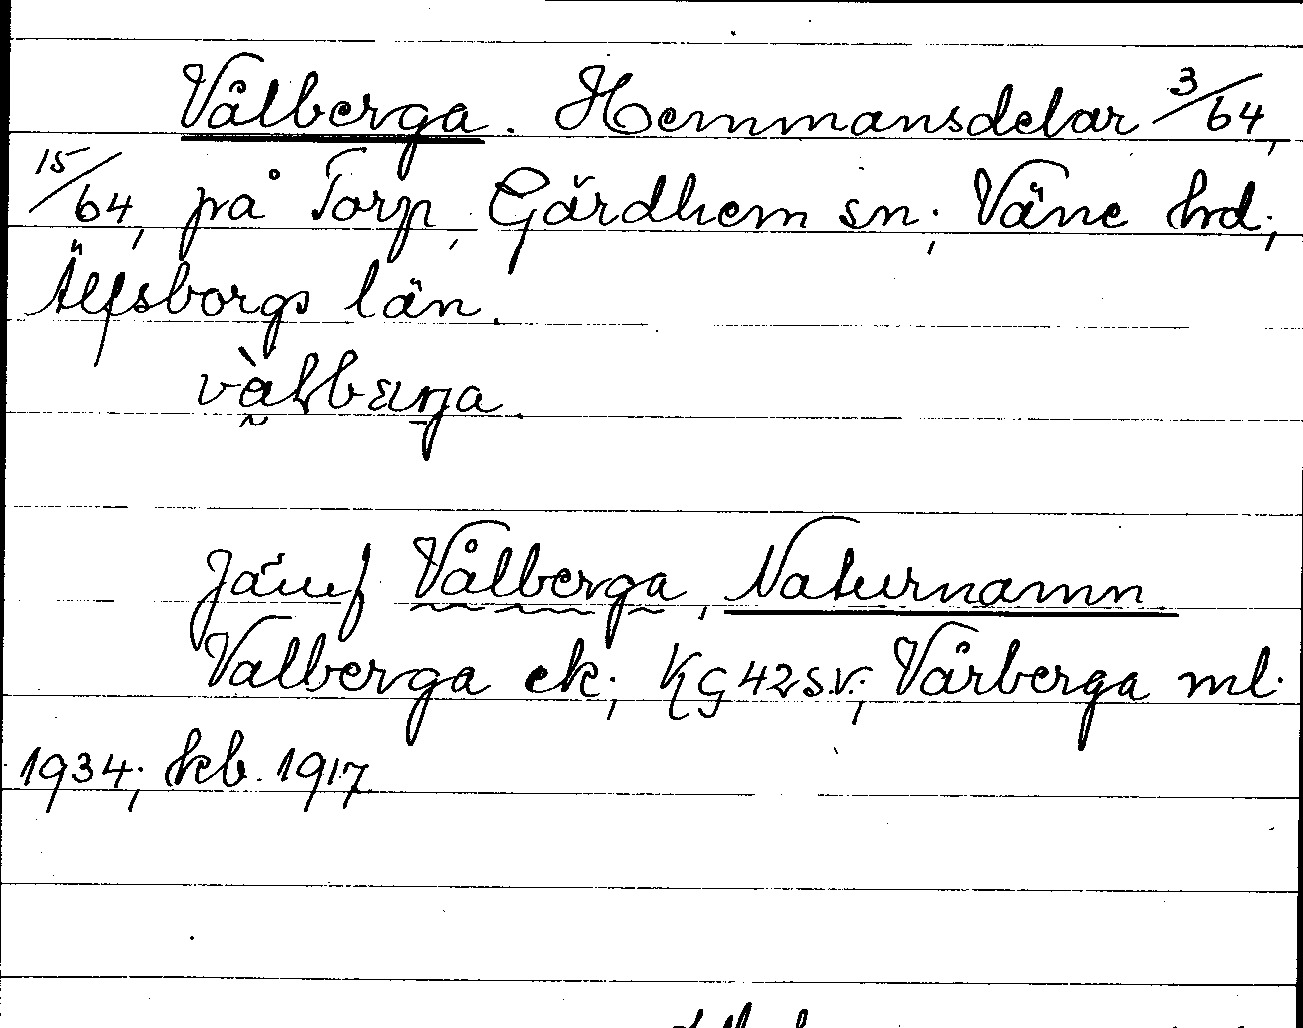 Vålberga. Hemmansdelar 3/64,
15/64, på Torp, Gärdhem sn; Väne hd;
Älfsborgs län.
Jämf Vålberga, Naturnamn.
Valberga ek; KG 42 s.v.; Vårberga ml.
1934; kb. 1917